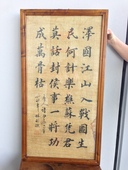 澤國江山入戰圖生
民何計樂樵蘇凭君
莫話封侯事一將功
成萬骨枯